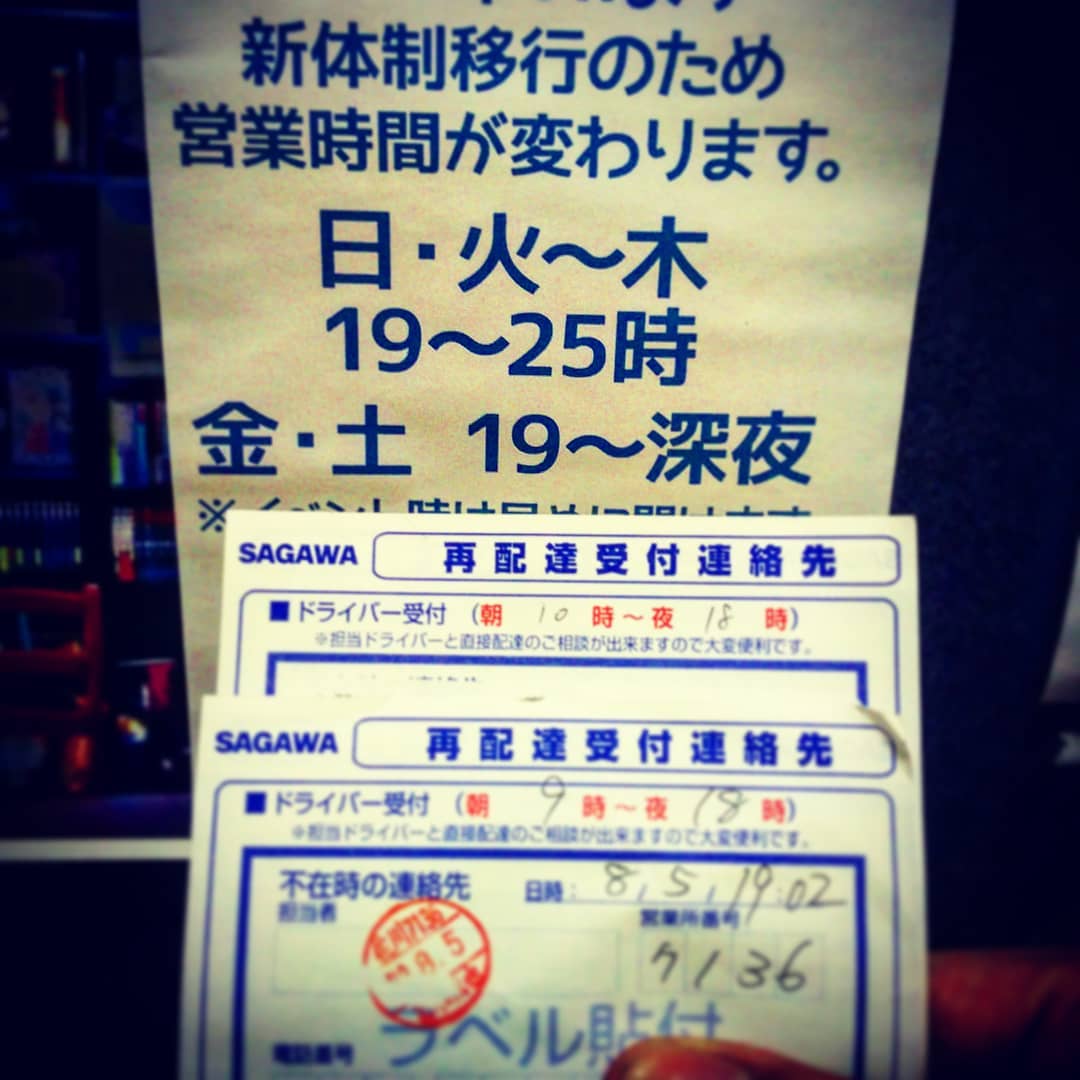 新体制移行のため
営業時間が変わります。
日・火〜木
19〜25時
金・土 19〜深夜
SAGAWA 再配達受付連絡先
■ドライバー受付 (朝 10 時〜夜 18 時)
※担当ドライバーと直接配達のご相談が出来ますので大変便利です。
SAGAWA 再配達受付連絡先
■ドライバー受付 (朝 9 時〜夜 18 時)
※担当ドライバーと直接配達のご相談が出来ますので大変便利です。
不在時の連絡先 日時: 8, 5, 19:02
担当者 営業所番号
7136
ラベル貼付
電話番号